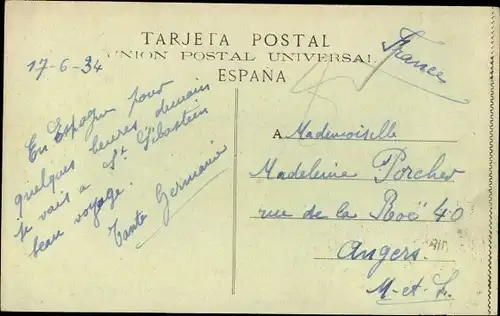 TARJETA POSTAL
UNION POSTAL UNIVERSAL
ESPAÑA
France
17-6-34
En Espagne pour
quelques heures demain
je vais a St Sébastien
beau voyage.
Tante Germaine
A Mademoiselle
Madeleine Porcher
rue de la Roë 40
Angers.
M-et-L.